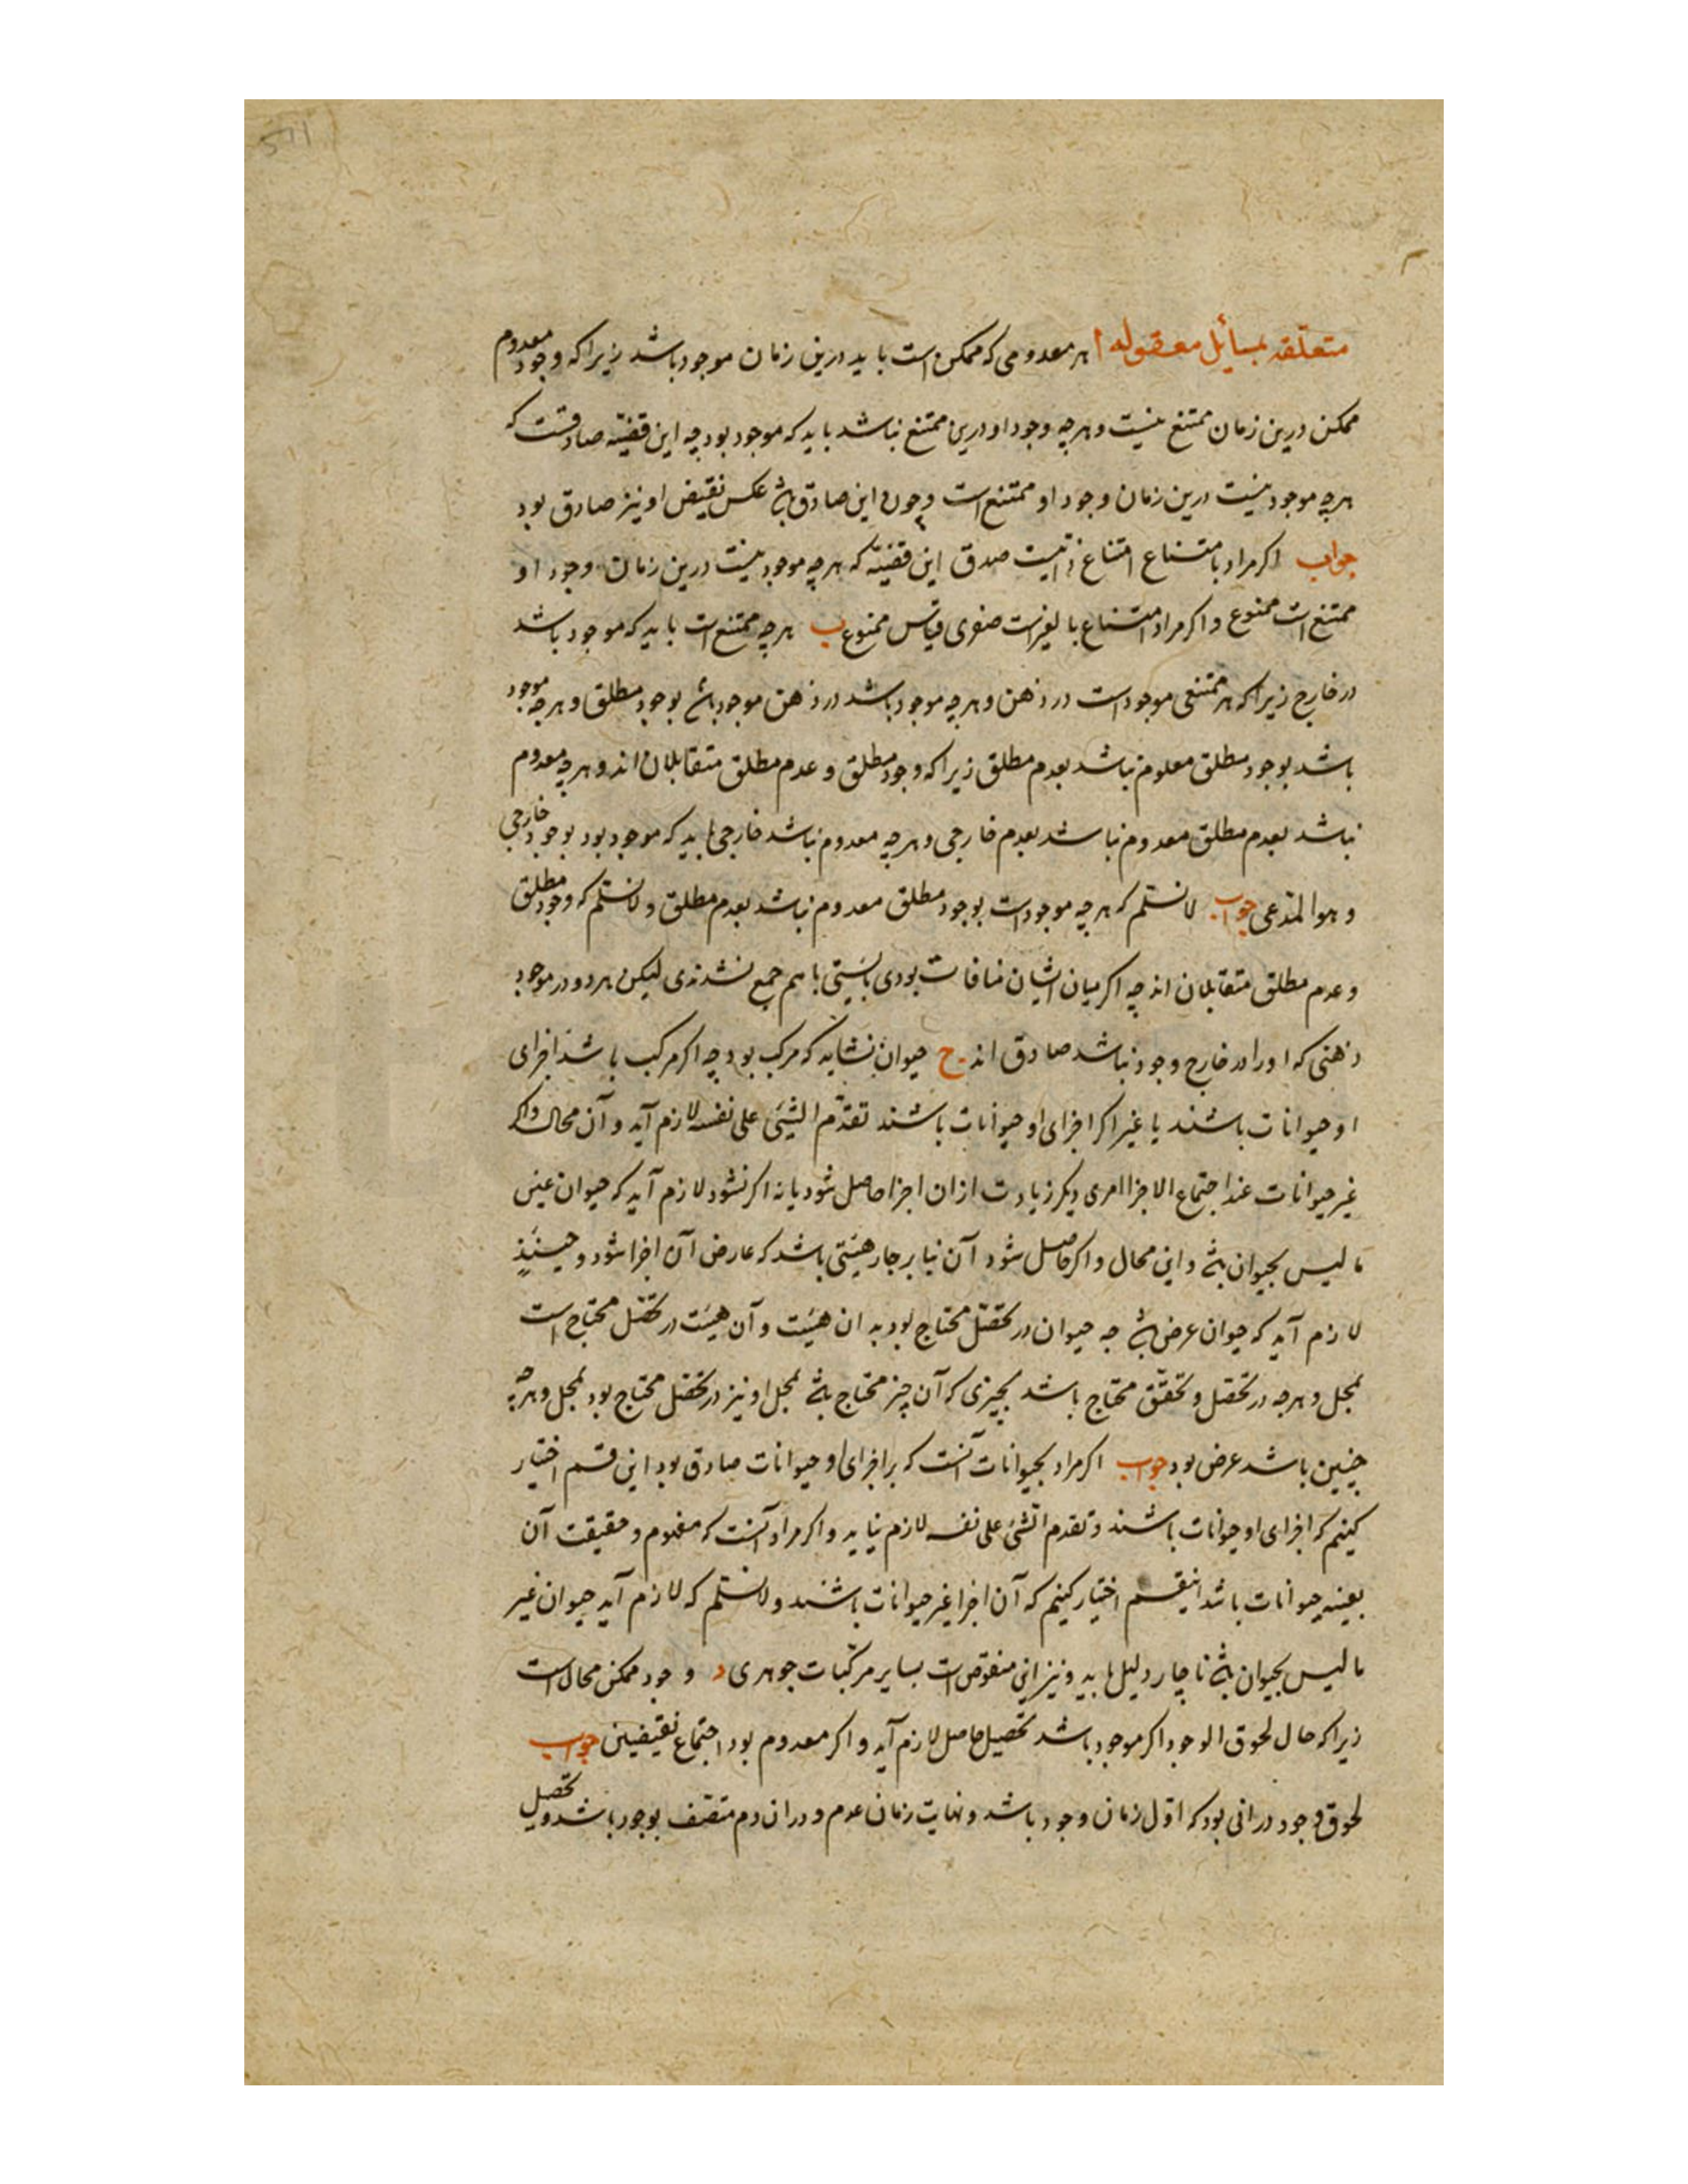 متعلقه بمسائل معقوله ا هر معدومی که ممکن است باید درین زمان موجود باشد زیرا که وجود معدوم
ممکن درین زمان ممتنع نیست و هرچه وجود او درین ممتنع نباشد باید که موجود بود چه این قضیّه صادقست که
هرچه موجود نیست درین زمان وجود او ممتنع است و چون این صادق باشد عکس نقیض او نیز صادق بود
جواب اکر مراد بامتناع امتناع ذاتیست صدق این قضیّه که هرچه موجود نیست درین زمان وجود او
ممتنع است ممنوع و اکر مراد امتناع بالغیرست صغری قیاس ممنوع ب هرچه ممتنع است باید که موجود باشد
در خارج زیرا که هر ممتنعی موجود است در ذهن و هرچه موجود باشد در ذهن موجود باشد بوجود مطلق و هرچه موجود
باشد بوجود مطلق معلوم نباشد بعدم مطلق زیرا که وجود مطلق و عدم مطلق متقابلان اند و هرچه معدوم
نباشد بعدم مطلق معدوم نباشد بعدم خارجی و هرچه معدوم نباشد خارجی باید که موجود بود بوجود خارجی
و هو المدّعی جواب لانسلّم که هرچه موجود است بوجود مطلق معدوم نباشد بعدم مطلق و لانسلّم که وجود مطلق
و عدم مطلق متقابلان اند چه اکر میان ایشان منافات بودی بایستی باهم جمع نشدندی لیکن هر دو در موجود
ذهنی که او را در خارج وجود نباشد صادق اند ج حیوان نشاید که مرکب بود چه اکر مرکب باشد اجزای
او حیوانات باشند یا غیر اکر اجزای او حیوانات باشند تقدّم الشیٔ علی نفسه لازم آید و آن محال و اکر
غیر حیوانات عند اجتماع الاجزا امری دیکر زیادت از ان اجزا حاصل شود یا نه اکر نشود لازم آید که حیوان عین
ما لیس بحیوان باشد و این محال و اکر حاصل شود آن ناچار هیئتی باشد که عارض آن اجزا شود و حینئذٍ
لازم آید که حیوان عرض باشد چه حیوان در تحصّل محتاج بود به ان هیئت و آن هیئت در تحصّل محتاج است
بمحل و هرچه در تحصّل و تحقّق محتاج باشد بچیزی که آن چیز محتاج باشد بمحل او نیز در تحصّل محتاج بود بمحل و هرچه
چنین باشد عرض بود جواب اکر مراد بحیوانات آنست که بر اجزای او حیوانات صادق بود این قسم اختیار
کنیم که اجزای او حیوانات باشند و تقدم الشیٔ علی نفسه لازم نیاید و اکر مراد آنست که مفهوم و حقیقت آن
بعینه حیوانات باشد اینقسم اختیار کنیم که آن اجزا غیر حیوانات باشند و لانسلّم که لازم آید حیوان غیر
ما لیس بحیوان باشد ناچار دلیل باید و نیز این منقوض است بسایر مرکّبات جوهری د وجود ممکن محال است
زیرا که حال لحوق الوجود اکر موجود باشد تحصیل حاصل لازم آید و اکر معدوم بود اجتماع نقیضین جواب
لحوق وجود در انی بود که اوّل زمان وجود باشد و نهایت زمان عدم و در ان دم متصّف بوجود باشد و تحصیل